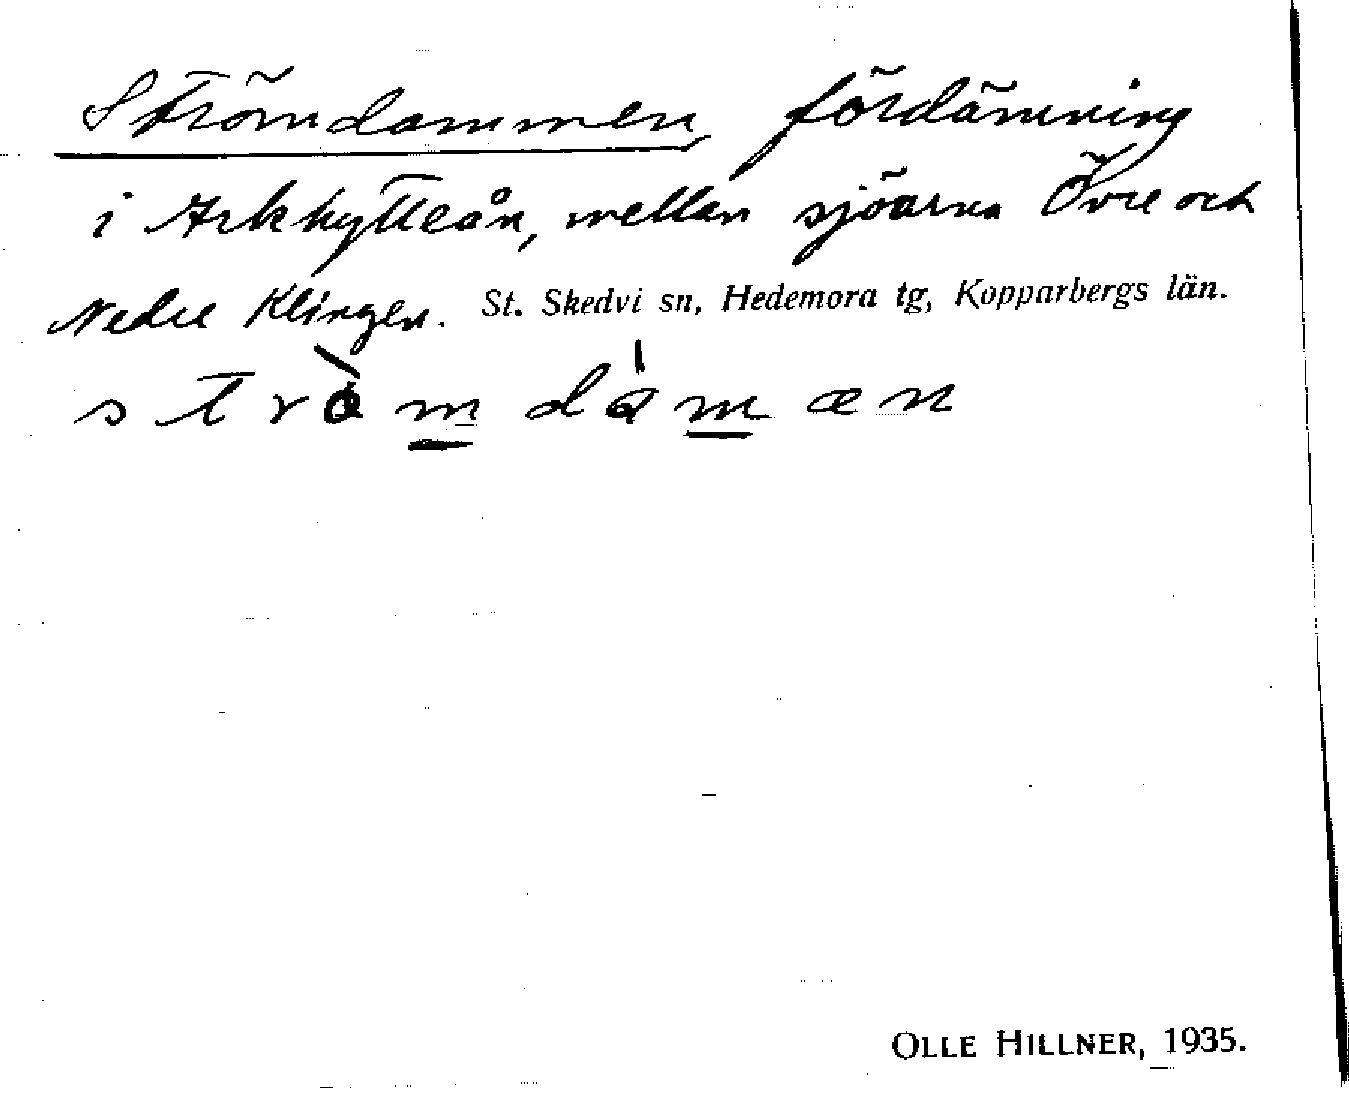 Strömdammen, fördämning
i Arkhytteån, mellan sjöarna Övre och
Nedre Klingen. St. Skedvi sn, Hedemora tg, Kopparbergs län.
strò̀m dámæn
OLLE HILLNER, 1935.